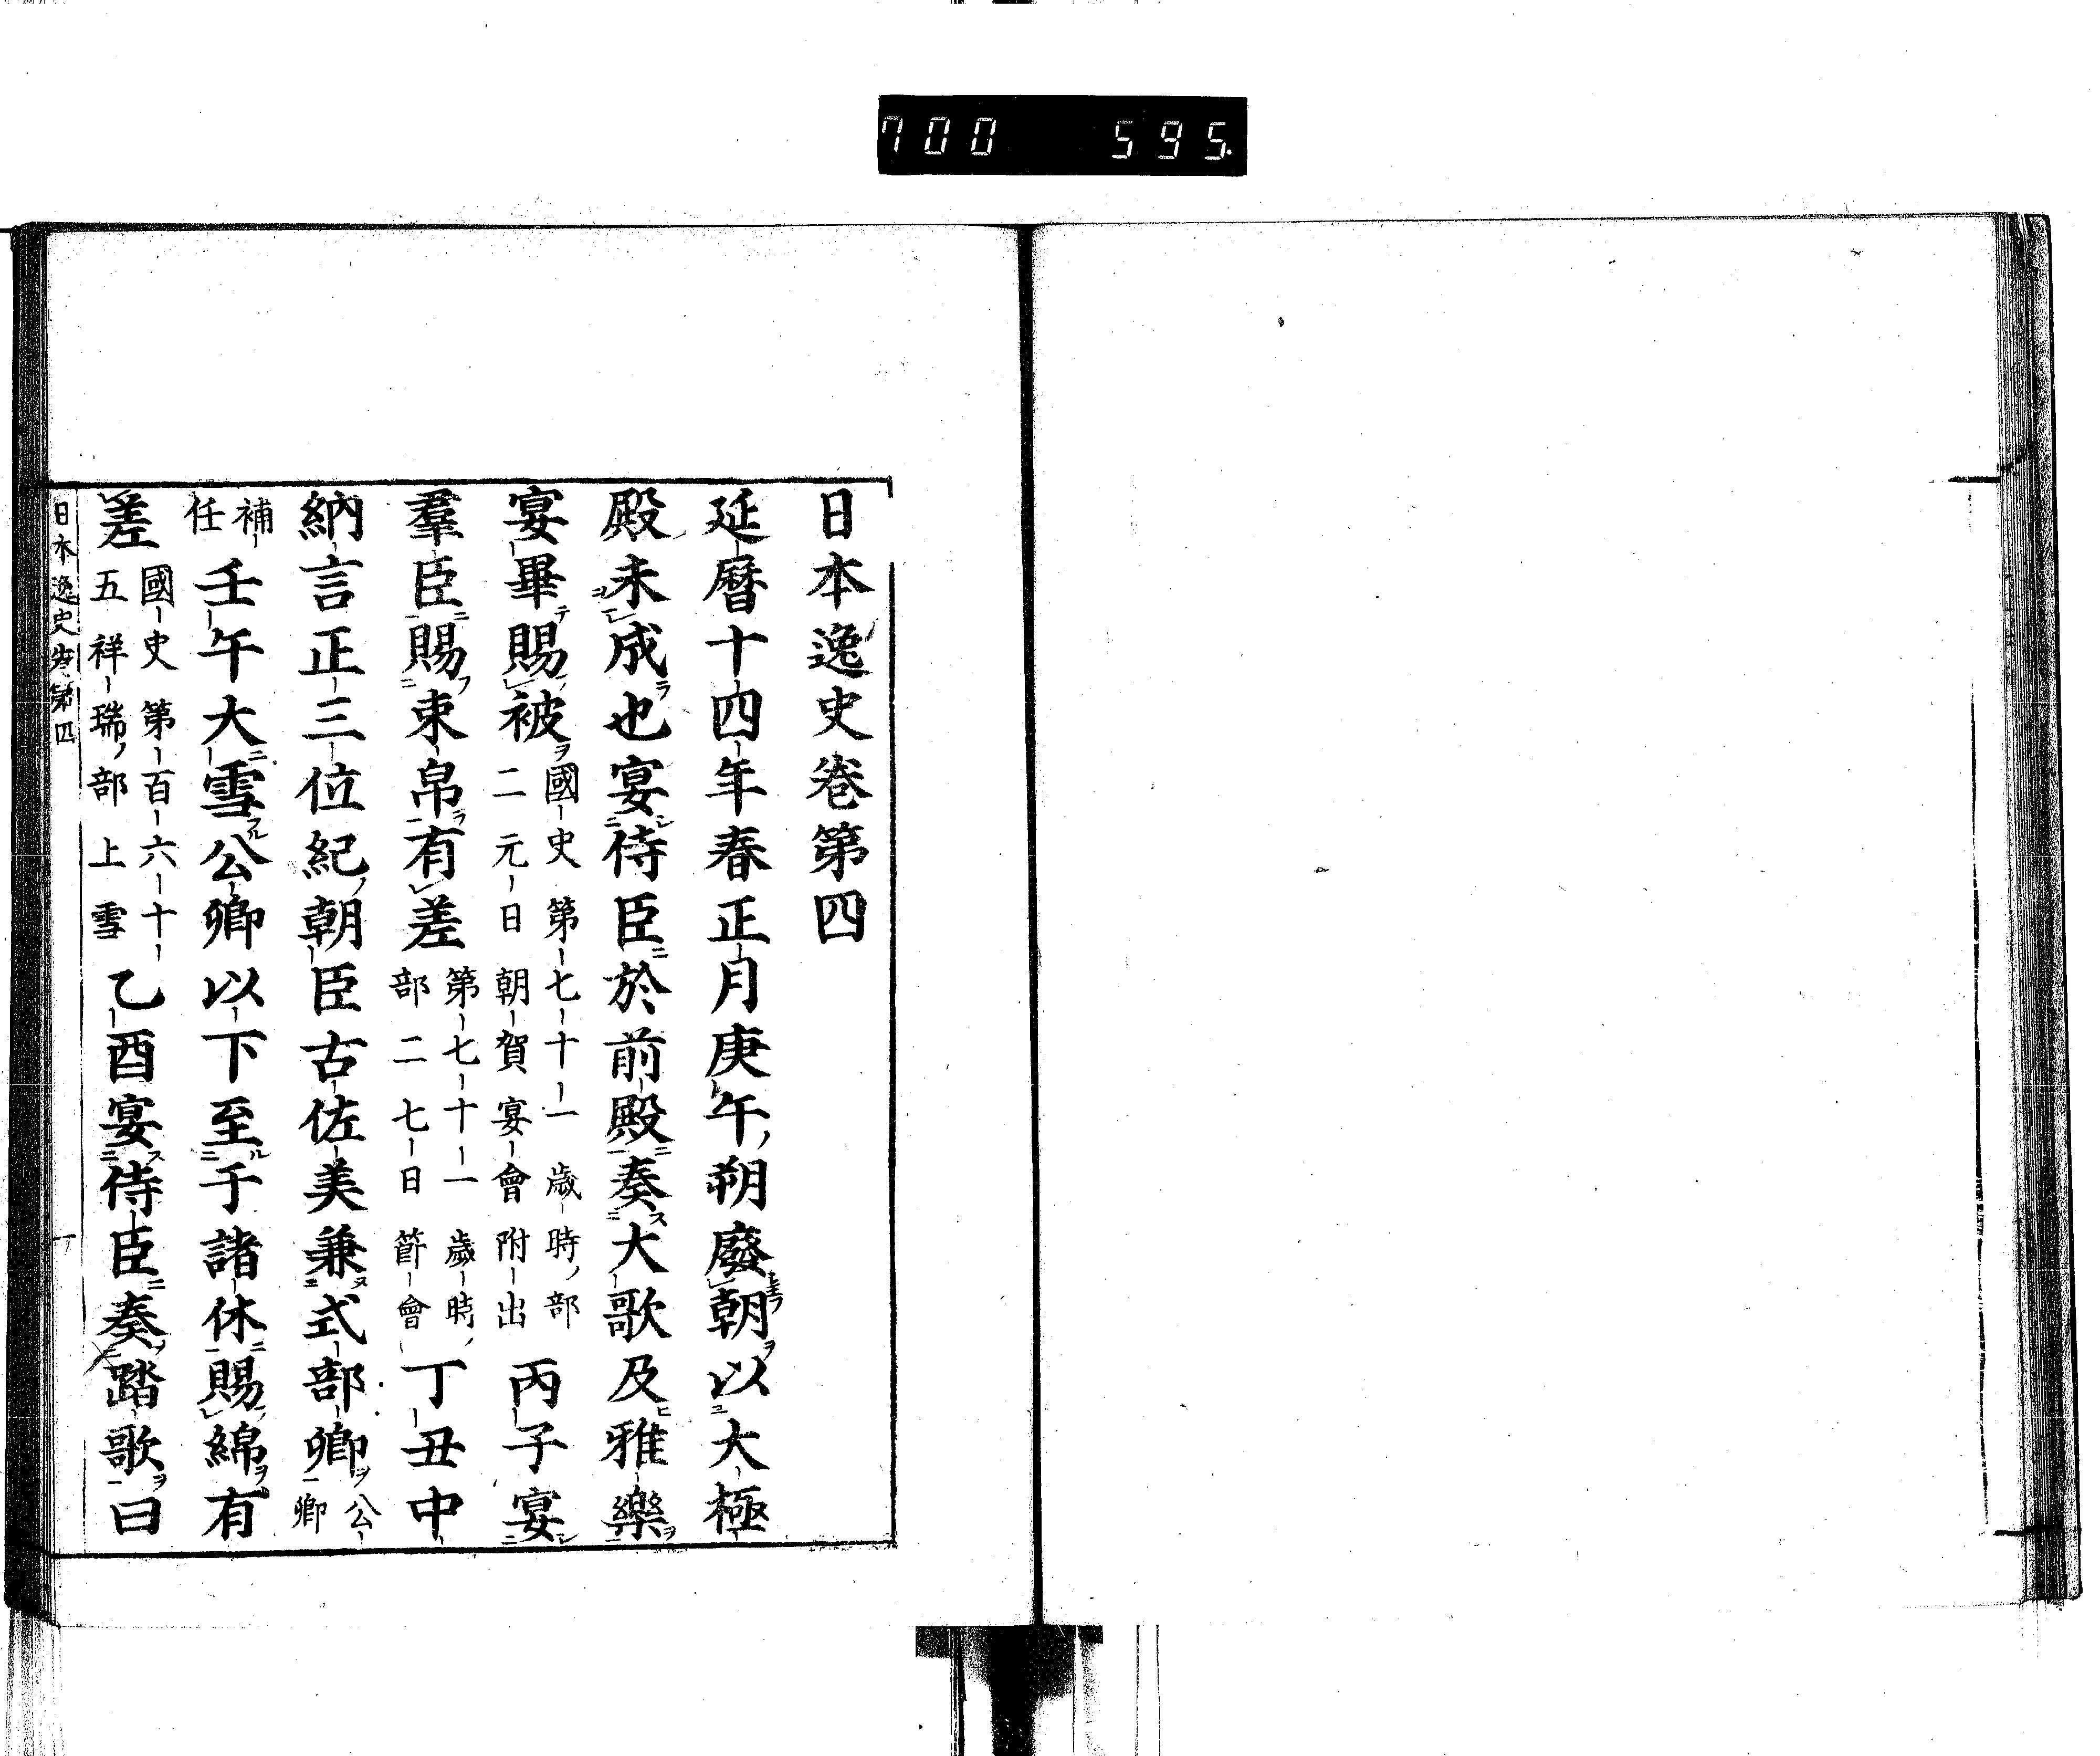 700 595
日本逸史卷第四
延暦十四年春正月庚午朔廢朝以大極
殿未成也宴侍臣於前殿奏大歌及雅樂
宴畢賜被國史第七十一歲時部二元日朝賀宴會附出丙子宴
羣臣賜束帛有差第七十一歲時部二七日節會丁丑中
納言正三位紀朝臣古佐美兼式部卿公卿
補任壬午大雪公卿以下至于諸休賜綿有
差國史第百六十五祥瑞部上雪乙酉宴侍臣奏踏歌曰
日本逸史卷第四